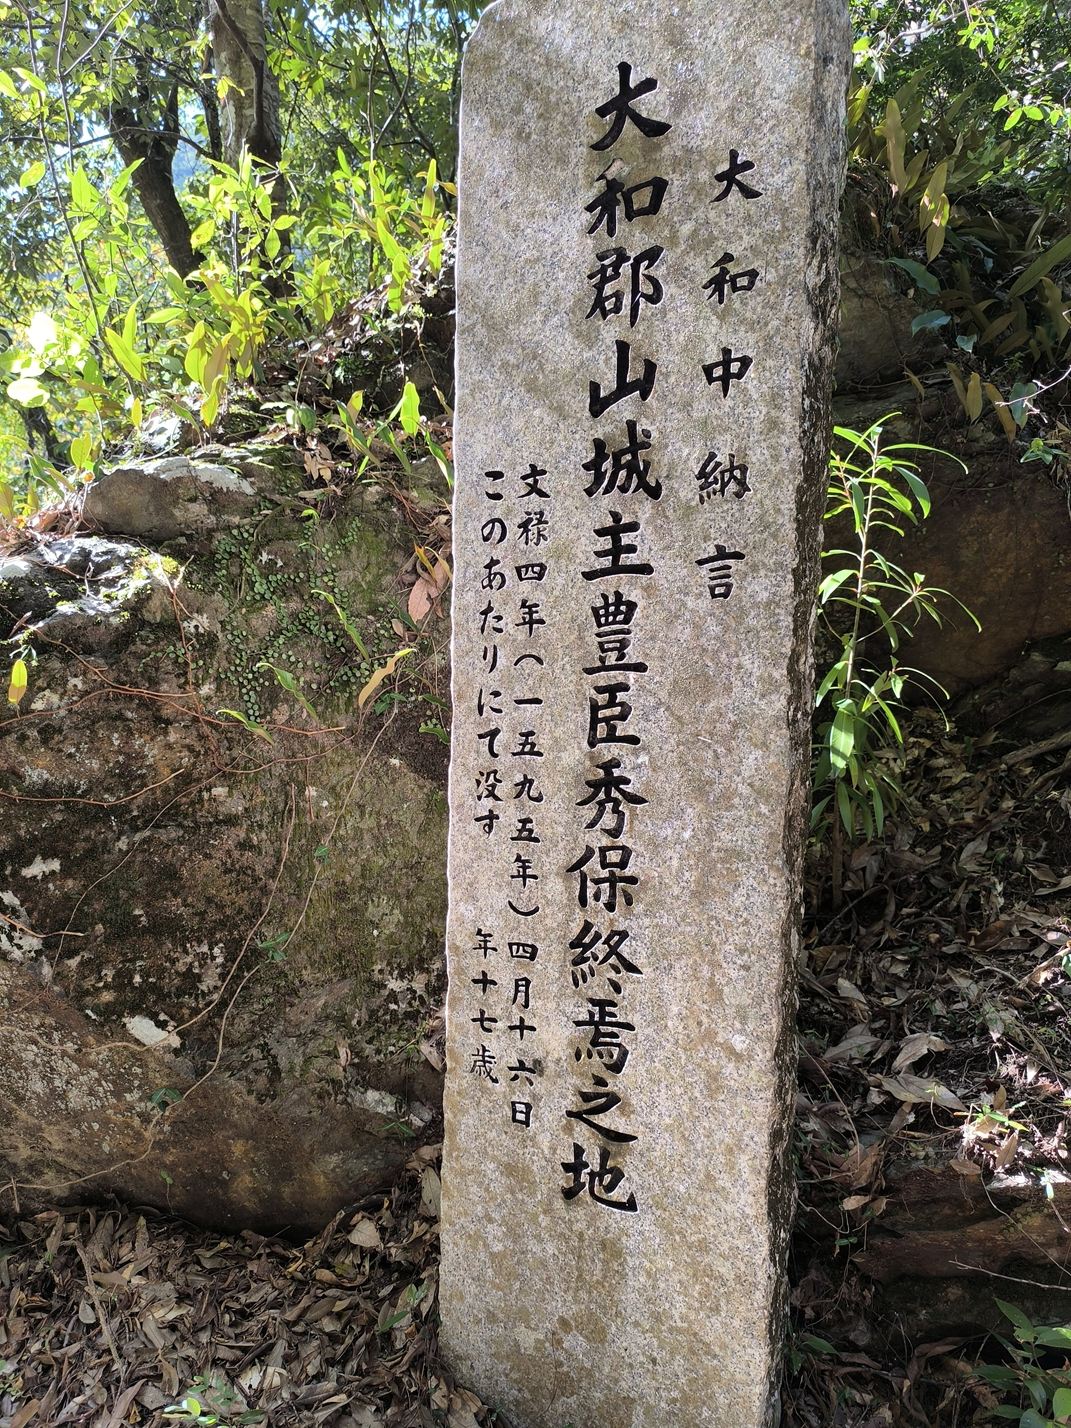 大和中納言
大和郡山城主豊臣秀保終焉之地
文禄四年(一五九五年)四月十六日
このあたりにて没す 年十七歳